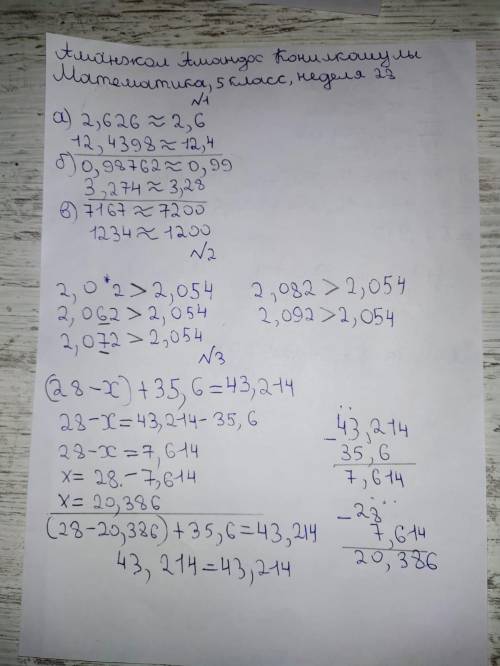 Аманжол Амандос Конилкошулы
Математика, 5 класс, неделя 23
№1
а) 2,626 ≈ 2,6
12,4398 ≈ 12,4
б) 0,98762 ≈ 0,99
3,274 ≈ 3,28
в) 7167 ≈ 7200
1234 ≈ 1200
№2
2,0*2 > 2,054
2,062 > 2,054
2,072 > 2,054
2,082 > 2,054
2,092 > 2,054
№3
(28-x) + 35,6 = 43,214
28-x = 43,214 - 35,6
28-x = 7,614
x = 28 - 7,614
x = 20,386
(28-20,386) + 35,6 = 43,214
43,214 = 43,214
- 43,214
35,6
7,614
- 28
7,614
20,386